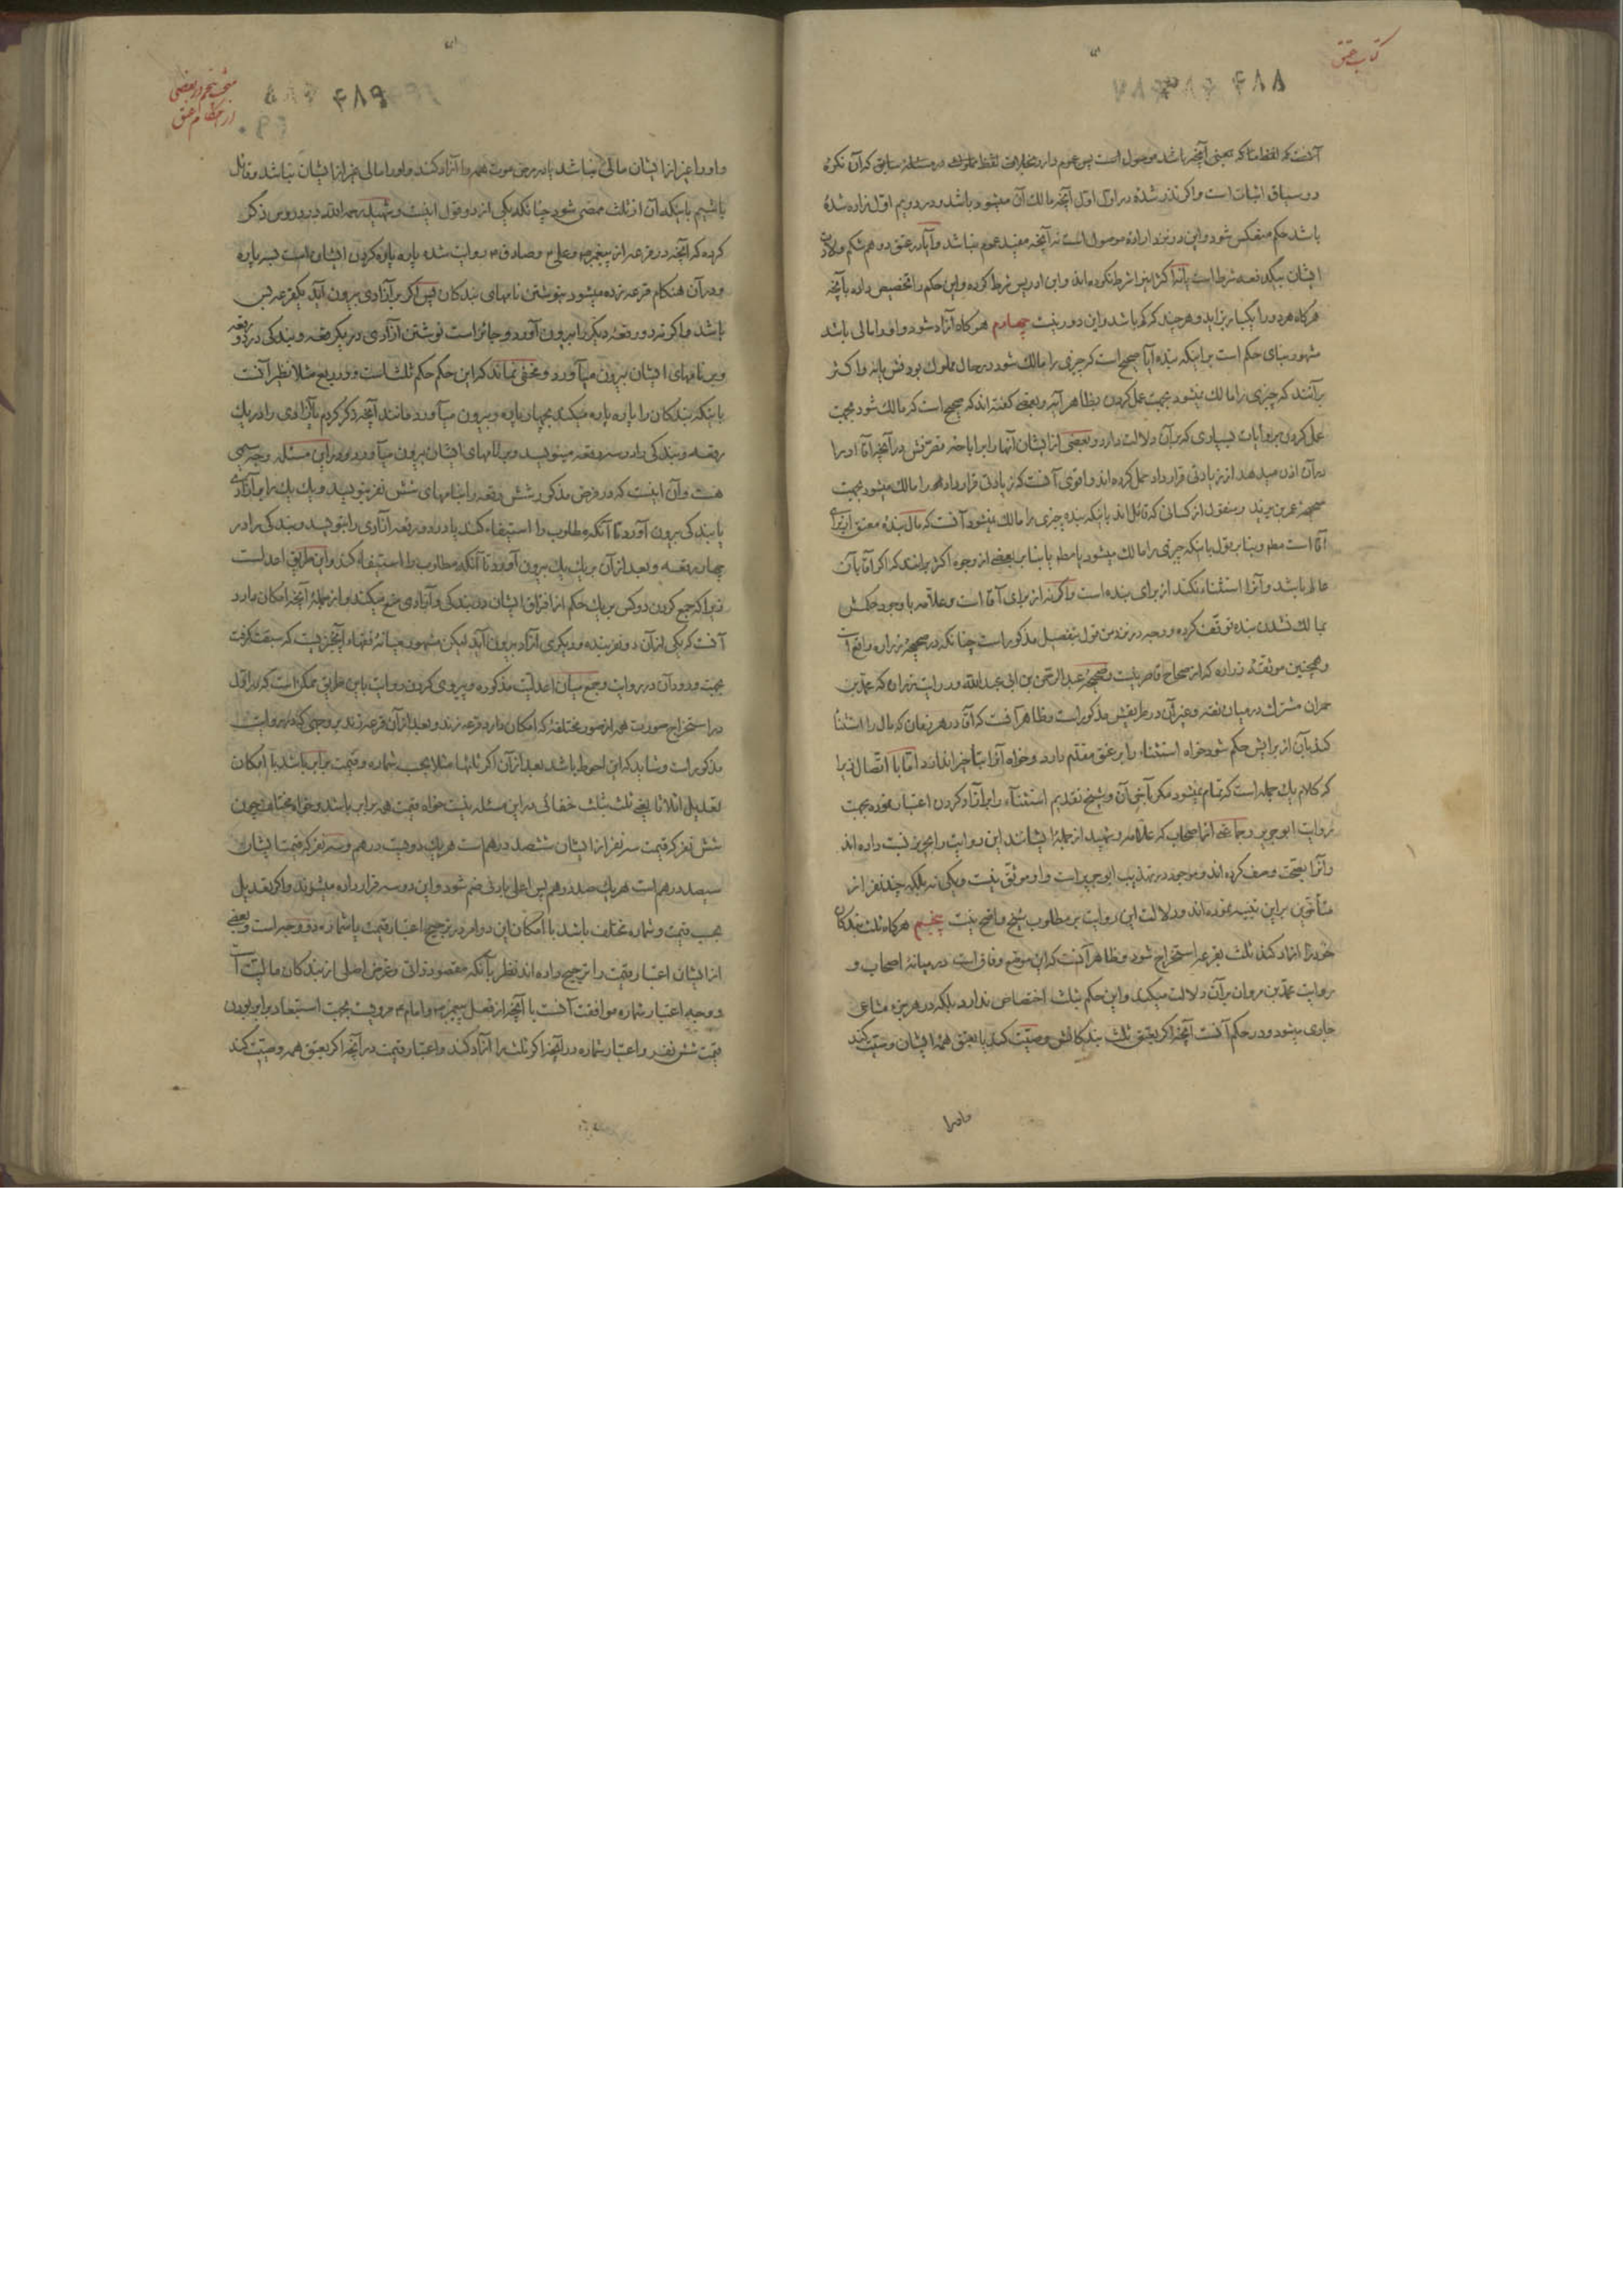 کتاب عتق
۴۸۸
آنست که لفظ ما که بمعنی آنچه باشد موصول است پس عموم دارد بخلاف لفظ مملوک در مسئله سابق که آن نکره
در سیاق اثبات است واکر نذر شده در اول اول آنچه مالک آن میشود باشد ودر دویم اول زاده شده
باشد حکم منعکس شود واین در نزد اراده موصول است نه آنچه مفید عموم نباشد وآیا در عتق دو هم شکم ولادت
ایشان بیکدفعه شرط است یا نه اکثر اینرا شرط نکرده اند وابن ادریس شرط کرده واین حکم را تخصیص داده بآنچه
هرکاه هر دو را یکبار بزاید وهر چند که کم باشد واین دور نیست چهارم هرکاه آزاد شود واو را مالی باشد
مشهور بنای حکم است بر اینکه بنده آیا صحیح است که چیزی را مالک شود در حال مملوک بودنش یا نه واکثر
برآنند که چیزی را مالک نمیشود بجهت عمل کردن بظاهر آیه وبعضی کفته اند که صحیح است که مالک شود بجهت
عمل کردن بروایات بسیاری که بر آن دلالت دارد وبعضی از ایشان آنها را بر اباحه تصرفش در آنچه آقا او را
در آن اذن میدهد از زیادتی قرارداد حمل کرده اند واقوی آنست که زیادتی قرارداد را مالک میشود بجهت
صحیحه عمر بن یزید ومنقول از کسانی که قائل اند باینکه بنده چیزی را مالک نمیشود آنست که مال بنده معتق از برای
آقا است مطلقا وبنابر قول باینکه چیزی را مالک میشود یا مطلقا یا بنابر بعضی از وجوه اکثر برآنند که اکر آقا بآن
عالم باشد وآنرا استثناء نکند از برای بنده است واکر نه از برای آقا است وعلامه با وجود حکمش
بمالک نشدن بنده توقف کرده ووجه در نزد من قول بتفصیل مذکور است چنانکه در صحیحه زراره واقع است
وهمچنین موثقه زراره که از صحاح قاصر نیست وصحیحه عبدالرحمن بن ابی عبدالله وروایت زراره که محمد بن
حمران مشترک در میان ثقه وغیر آن در طریقش مذکور است وظاهر آنست که آقا در هر زمان که مال را استثناء
کند بآن از برایش حکم شود خواه استثناء را بر عتق مقدم دارد وخواه آنرا بتأخیر اندازد اما با اتصال زیرا
که کلام یک جمله است که تمام نمیشود مکر بآخر آن وشیخ تقدیم استثناء را بر آزاد کردن اعتبار نموده بجهت
روایت ابوجریر وجماعتی از اصحاب که علامه وشهید از جمله ایشانند این روایت را بحریز نسبت داده اند
وآنرا بصحت وصف کرده اند وموجود در تهذیب ابوجریر است واو موثق نیست ویکی نه بلکه چند نفر از
متأخرین بر این تنبیه نموده اند ودلالت این روایت بر مطلوب شیخ واضح نیست پنجم هرکاه ثلث بندکان
خود را آزاد کند ثلث بقرعه استخراج شود وظاهر آنست که این موضع وفاق است در میانه اصحاب و
روایت محمد بن مروان بر آن دلالت میکند واین حکم بثلث اختصاص ندارد بلکه در هر جزء مشاعی
جاری میشود ودر حکم آنست آنچه اکر بعتق ثلث بندکانش وصیت کند یا بعتق همه ایشان وصیت کند
واورا
مبحث پنجم در بعضی
از احکام عتق
۴۸۹
واو را غیر از ایشان مالی نباشد یا در مرض موت همه را آزاد کند واو را مالی غیر از ایشان نباشد وقائل
باشیم باینکه آن از ثلث ممضی شود چنانکه یکی از دو قول اینست وشهید رحمه الله در دروس ذکر
کرده که آنچه در قرعه از پیغمبر ص وعلی ع وصادق ع روایت شده پاره پاره کردن ایشان است بسه پاره
ودر آن هنکام قرعه زده میشود بنوشتن نامهای بندکان پس اکر بر آزادی بیرون آید یکقرعه بس
باشد واکر نه دو رقعه دیکر را بیرون آورد وجائز است نوشتن آزادی در یکرقعه وبندکی در دو رقعه
وبر نامهای ایشان بیرون میآورد ومخفی نماند که این حکم حکم ثلث است ودر ربع مثلا نظیر آنست
باینکه بندکان را پاره پاره میکند بچهار پاره وبیرون میآورد مانند آنچه ذکر کردیم یا آزادی را در یک
رقعه وبندکی را در سه رقعه مینویسد وبر نامهای ایشان بیرون میآورد ودر این مسئله وجه سیمی
هست وآن اینست که در فرض مذکور شش رقعه را بنامهای شش نفر بنویسد ویک یک را بر آزادی
یا بندکی بیرون آورد تا آنکه مطلوب را استیفاء کند یا در دو رقعه آزادی را بنویسد وبندکی را در
چهار رقعه وبعد از آن بر یک یک بیرون آورد تا آنکه مطلوب را استیفاء کند واین طریق اعدل است
زیرا که جمع کردن دو کس بر یک حکم از افتراق ایشان در بندکی وآزادی منع میکند واز جمله آنچه امکان دارد
آنست که یکی از آن دو نفر بنده ودیکری آزاد بیرون آید لیکن مشهور میانه فقهاء آنچیزیست که سبقت کرفت
بجهت ورود آن در روایت وجمع میان اعدلیت مذکوره وپیروی کردن روایت باین طریق ممکن است که در اول
در استخراج صورت هر از صور مختلفه که امکان دارد قرعه زند وبعد از آن قرعه زند بر وجهی که در روایت
مذکور است وشاید که این احوط باشد بعد از آن اکر ثلثها مثلا بحسب شماره وقیمت برابر باشد با امکان
تعدیل اثلاثا یعنی ثلث بثلث خفائی در این مسئله نیست خواه قیمت همه برابر باشد وخواه مختلف چون
شش نفر که قیمت سه نفر از ایشان ششصد درهم است هر یک دویست درهم وسه نفر که قیمت ایشان
سیصد درهم است هر یک صد درهم پس اعلی بادنی ضم شود واین دو سه قرار داده میشوند واکر تعدیل
بحسب قیمت وشماره مختلف باشد با امکان این دو امر در ترجیح اعتبار قیمت یا شماره دو وجه است وبعضی
از ایشان اعتبار قیمت را ترجیح داده اند نظر بآنکه مقصود ذاتی وغرض اصلی از بندکان مالیت است
ووجه اعتبار شماره موافقت آنست با آنچه از فعل پیغمبر ص وامام ع مرویست بجهت استبعاد برابر بودن
قیمت شش نفر واعتبار شماره در آنچه اکر ثلث را آزاد کند واعتبار قیمت در آنچه اکر بعتق همه وصیت کند